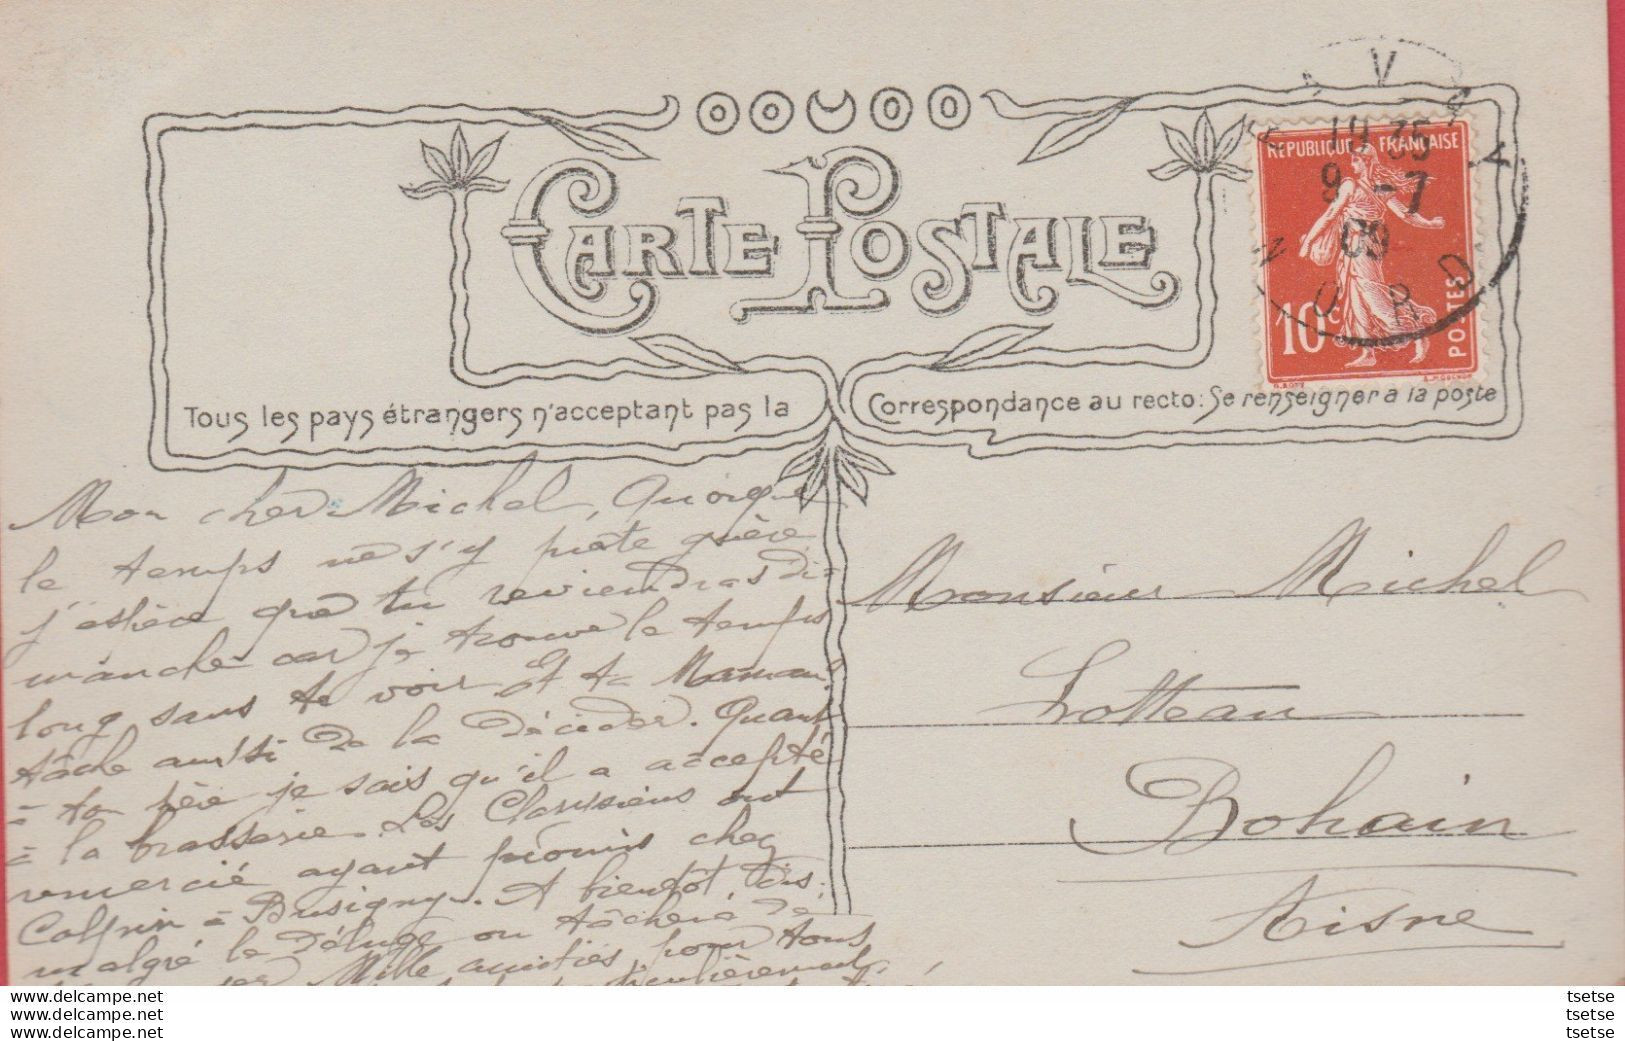 CARTE POSTALE
REPUBLIQUE FRANÇAISE
10 35
9 - 7
09
10 c
POSTES
NORD
Tous les pays étrangers n'acceptent pas la Correspondance au recto: Se renseigner a la poste
Mon cher Michel, Quoique
le temps ne s'y prête guère
j'espère que tu reviendras di-
manche car je trouve le temps
long sans te voir. Et ta Maman?
tâche aussi de la décider. Quant
à ton père je sais qu'il a accepté
à la brasserie. Les Clavisiens ont
remercié ayant promis chez
à Busigny. A bientôt,
malgré le déluge on tâchera de
Mille amitiés pour tous
particulièrement
Monsieur Michel
Lotteau
Bohain
Aisne
www.delcampe.net
www.delcampe.net
www.delcampe.net
tsetse
tsetse
tsetse